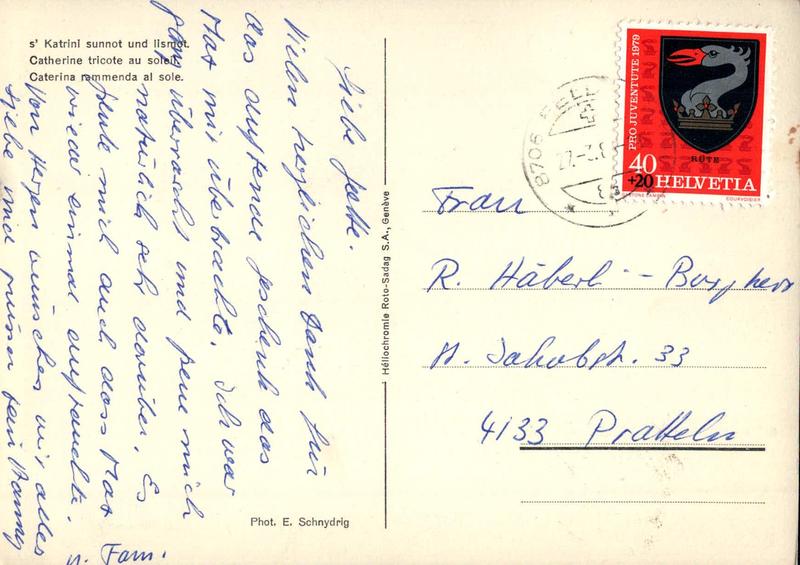 s' Katrini sunnot und lismot.
Catherine tricote au soleil.
Caterina rammenda al sole.
Liebe Jette.
Vielen herzlichen Dank für
das duftende Geschenk das
Max mir überbrachte. Ich war
ganz überrascht und freue mich
natürlich sehr darüber. Es
freute mich auch dass Max
wieder einmal auftauchte.
Von Herzen wünschen wir alles
Liebe und grüssen dein
u. Fam.
Phot. E. Schnydrig
Héliochromie Roto-Sadag S.A., Genève
8706
27.-3.8
PRO JUVENTUTE 1979
RÜTE
40
+20 HELVETIA
COURVOISIER
Frau
R. Häberli -
St. Jakobstr. 33
4133 Pratteln